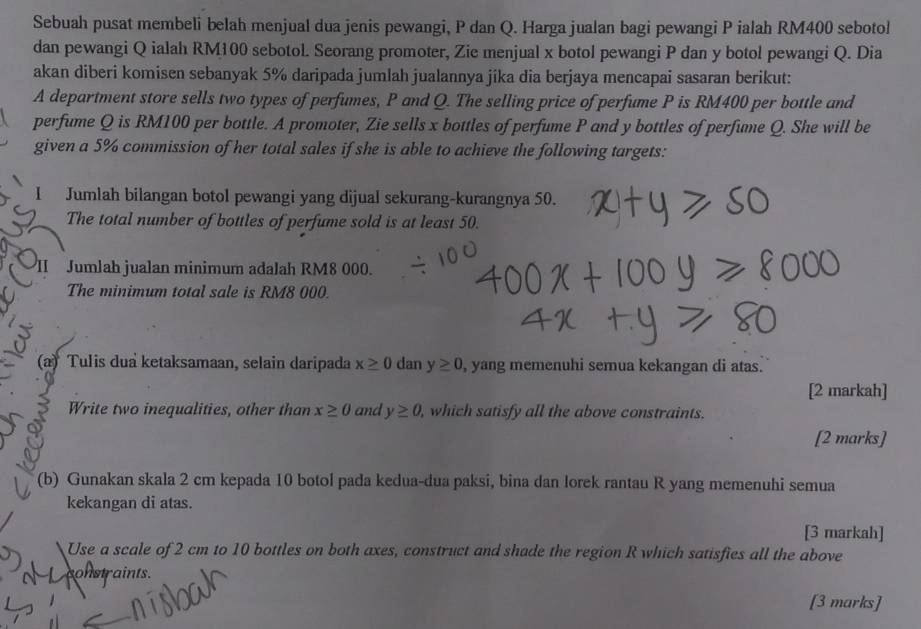 Sebuah pusat membeli belah menjual dua jenis pewangi, P dan Q. Harga jualan bagi pewangi P ialah RM400 sebotol
dan pewangi Q ialah RM100 sebotol. Seorang promoter, Zie menjual x botol pewangi P dan y botol pewangi Q. Dia
akan diberi komisen sebanyak 5% daripada jumlah jualannya jika dia berjaya mencapai sasaran berikut:
A department store sells two types of perfumes, P and Q. The selling price of perfume P is RM400 per bottle and
perfume Q is RM100 per bottle. A promoter, Zie sells x bottles of perfume P and y bottles of perfume Q. She will be
given a 5% commission of her total sales if she is able to achieve the following targets:
I Jumlah bilangan botol pewangi yang dijual sekurang-kurangnya 50. x + y ≥ 50
The total number of bottles of perfume sold is at least 50.
II Jumlah jualan minimum adalah RM8 000. ÷100 400x + 100y ≥ 8000
The minimum total sale is RM8 000.
4x + y ≥ 80
(a) Tulis dua ketaksamaan, selain daripada x ≥ 0 dan y ≥ 0, yang memenuhi semua kekangan di atas.
[2 markah]
Write two inequalities, other than x ≥ 0 and y ≥ 0, which satisfy all the above constraints.
[2 marks]
(b) Gunakan skala 2 cm kepada 10 botol pada kedua-dua paksi, bina dan lorek rantau R yang memenuhi semua
kekangan di atas.
[3 markah]
Use a scale of 2 cm to 10 bottles on both axes, construct and shade the region R which satisfies all the above
constraints.
nisbah
[3 marks]